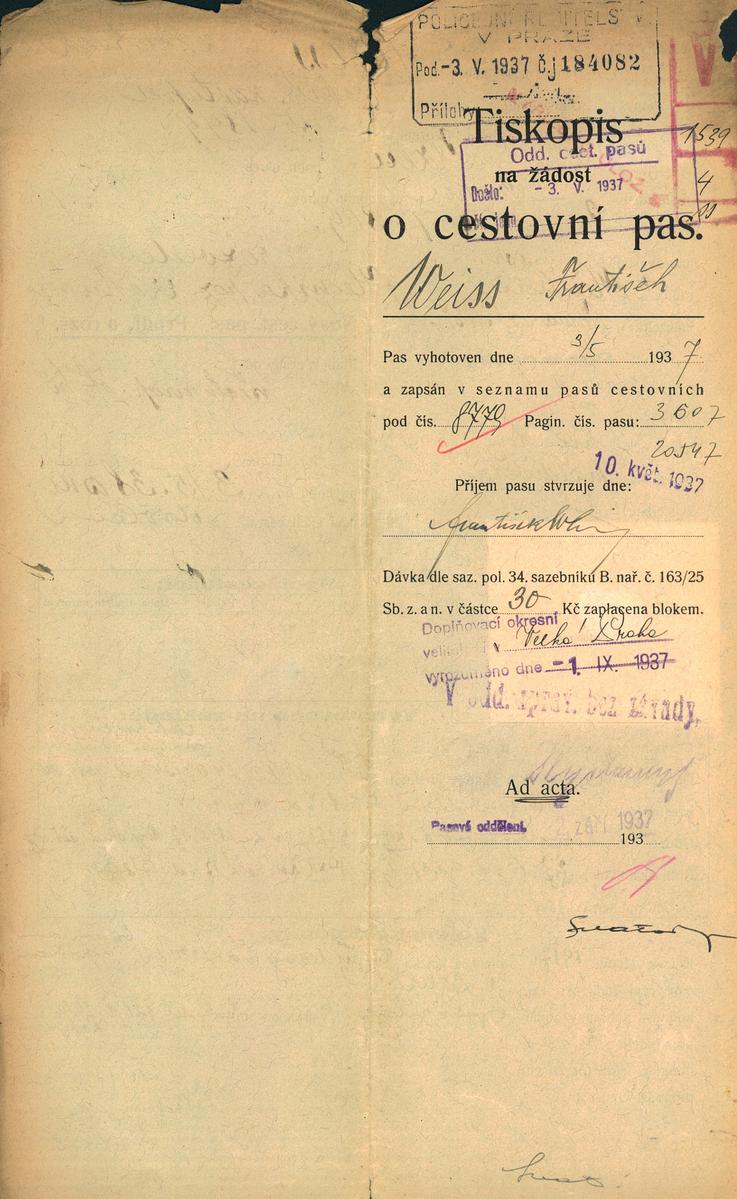 POLICEJNÍ ŘEDITELSTV
V PRAZE
Pod. -3. V. 1937 č.j 184082
Přílohy
Tiskopis
1539
Odd. cest. pasů
na žádost
Došlo: -3. V. 1937
4
o cestovní pas.
Weiss František
Pas vyhotoven dne 3/5 1937
a zapsán v seznamu pasů cestovních
pod čís. 8779 Pagin. čís. pasu: 3607
20547
10. květ. 1937
Příjem pasu stvrzuje dne:
František
Dávka dle saz. pol. 34. sazebníku B. nař. č. 163/25
Sb. z. a n. v částce 30 Kč zaplacena blokem.
Doplňovací okresní
Velká Praha
vyrozuměno dne -1. IX. 1937
V odd. uprav. bez závady.
Ad acta.
Pasové oddělení.
září 1937
193